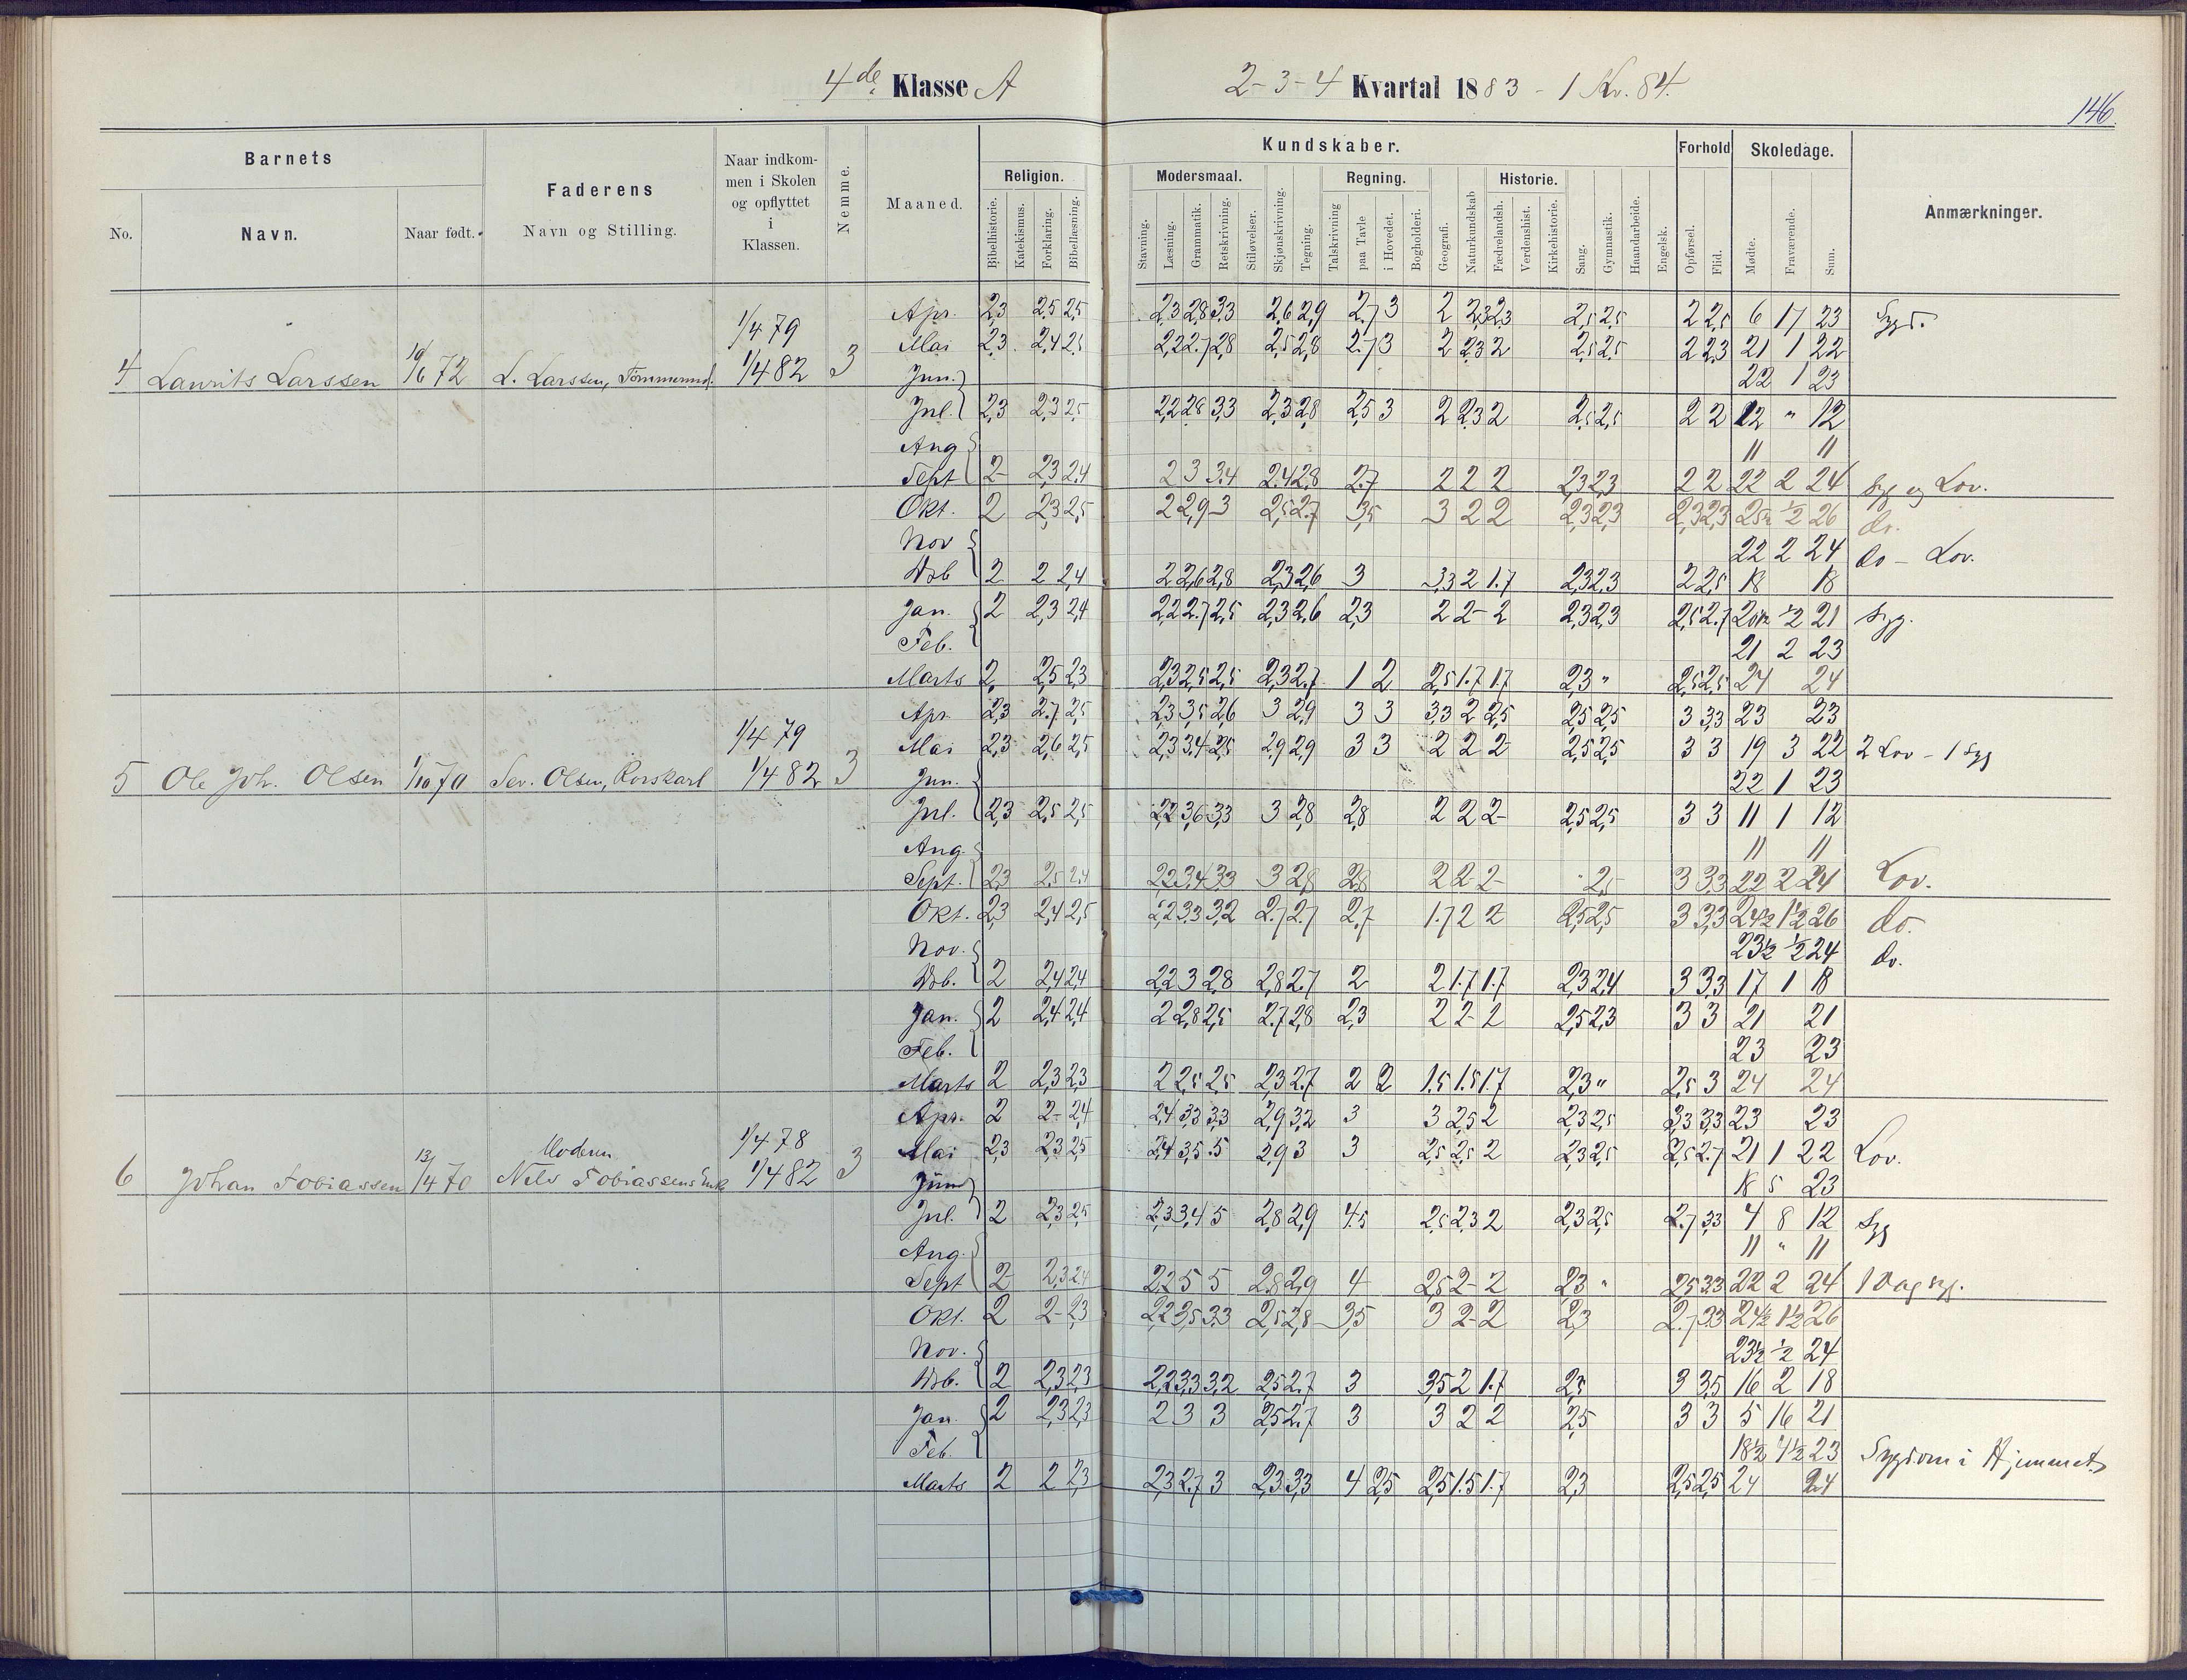 4de Klasse A 2-3-4 Kvartal 1883 - 1 Kv. 84.
146.
Barnets Faderens Naar indkommen i Skolen og opflyttet i Klassen. Nemme. Maaned. Religion. Kundskaber. Forhold Skoledage. Anmærkninger.
No. Navn. Naar født. Navn og Stilling.
Bibelhistorie. Katekismus. Forklaring. Bibellæsning.
Modersmaal. Regning. Historie.
Stavning. Læsning. Grammatik. Retskrivning. Stiløvelser. Skjønskrivning. Tegning. Talskrivning paa Tavle i Hovedet. Bogholderi. Geografi. Naturkundskab Fædrelandsh. Verdenshist. Kirkehistorie. Sang. Gymnastik. Haandarbeide. Engelsk. Opførsel. Flid. Mødte. Fraværende. Sum.
Apr. 2,3 2,5 2,5 2,3 2,8 3,3 2,6 2,9 2,7 3 2 2,3 2,3 2,5 2,5 2 2,5 6 17 23
1/4 79
Mai 2,3 2,4 2,5 2,2 2,7 2,8 2,5 2,8 2,7 3 2 2,3 2 2,5 2,5 2 2,3 21 1 22
4 Laurits Larssen 72 L. Larssen, 1/4 82 3 Jun. 22 1 23
Jul. 2,3 2,3 2,5 2,2 2,8 3,3 2,3 2,8 2,5 3 2 2,3 2 2,5 2,5 2 2 12 " 12
Aug 11 11
Sept 2 2,3 2,4 2 3 3,4 2,4 2,8 2,7 2 2 2 2,3 2,3 2 2 22 2 24 Syg og Lov.
Okt. 2 2,3 2,5 2 2,9 3 2,5 2,7 3,5 3 2 2 2,3 2,3 2,3 2,3 25½ ½ 26 do.
Nov 22 2 24 do - Lov.
Dcb 2 2 2,4 2 2,6 2,8 2,3 2,6 3 3,3 2 1.7 2,3 2,3 2 2,5 18 18
Jan. 2 2,3 2,4 2,2 2.7 2,5 2,3 2,6 2,3 2 2 2 2,3 2,3 2,5 2.7 20½ ½ 21 Syg.
Feb. 21 2 23
Marts 2 2,5 2,3 2,3 2,5 2,5 2,3 2.7 1 2 2,5 1.7 1.7 2,3 " 2,5 2,5 24 24
Apr. 2,3 2.7 2,5 2,3 3,5 2,6 3 2,9 3 3 3,3 2 2,5 2,5 2,5 3 3,3 23 23
1/4 79
Mai 2,3 2,6 2,5 2,3 3,4 2,5 2,9 2,9 3 3 2 2 2 2,5 2,5 3 3 19 3 22 2 Lov - 1 Syg
5 Ole Joh. Olsen 1/10 70 Sev. Olsen, Rorskarl 1/4 82 3 Jun. 22 1 23
Jul. 2,3 2,5 2,5 2,2 3,6 3,3 3 2,8 2,8 2 2 2 2,5 2,5 3 3 11 1 12
Aug. 11 11
Sept. 2,3 2,5 2,4 2,2 3,4 3,3 3 2,8 2,8 2 2 2 2,5 3 3,3 22 2 24 Lov.
Okt. 2,3 2,4 2,5 2,2 3,3 3,2 2.7 2.7 2,7 1.7 2 2 2,5 2,5 3 3,3 24½ 1½ 26 do.
Nov. 23½ ½ 24 do.
Dcb. 2 2,4 2,4 2,2 3 2,8 2,8 2,7 2 2 1.7 1.7 2,3 2,4 3 3,3 17 1 18
Jan. 2 2,4 2,4 2 2,8 2,5 2.7 2,8 2,3 2 2 2 2,5 2,3 3 3 21 21
Feb. 23 23
Marts 2 2,3 2,3 2 2,5 2,5 2,3 2.7 2 2 1.5 1.5 1.7 2,3 " 2,5 3 24 24
Apr. 2 2 2,4 2,4 3,3 3,3 2,9 3,2 3 3 2,5 2 2,3 2,5 3,3 3,3 23 23
Moderen 1/4 78
Mai 2,3 2,3 2,5 2,4 3,5 5 2,9 3 3 2,5 2,5 2 2,3 2,5 2,5 2.7 21 1 22 Lov.
6 Johan Tobiassen 13/4 70 Nils Tobiassens Enke 1/4 82 3 Juni 18 5 23
Jul. 2 2,3 2,5 2,3 3,4 5 2,8 2,9 4.5 2,5 2,3 2 2,3 2,5 2.7 3,3 4 8 12 Syg
Aug. 11 " 11
Sept 2 2,3 2,4 2,2 5 5 2,8 2,9 4 2,5 2 2 2,3 " 2,5 3,3 22 2 24 1 Dag syg.
Okt. 2 2 2,3 2,2 3,5 3,3 2,5 2,8 3,5 3 2 2 2,3 2.7 3,3 24½ 1½ 26
Nov. 23½ ½ 24
Dcb. 2 2,3 2,3 2,2 3,3 3,2 2,5 2.7 3 3,5 2 1.7 2,5 3 3,5 16 2 18
Jan. 2 2,3 2,3 2 3 3 2,5 2.7 3 3 2 2 2,5 3 3 5 16 21
Feb. 18½ 4½ 23 Sygdom i Hjemmet
Marts 2 2 2,3 2,3 2.7 3 2,3 3,3 4 2,5 2,5 1.5 1.7 2,3 2,5 2,5 24 24